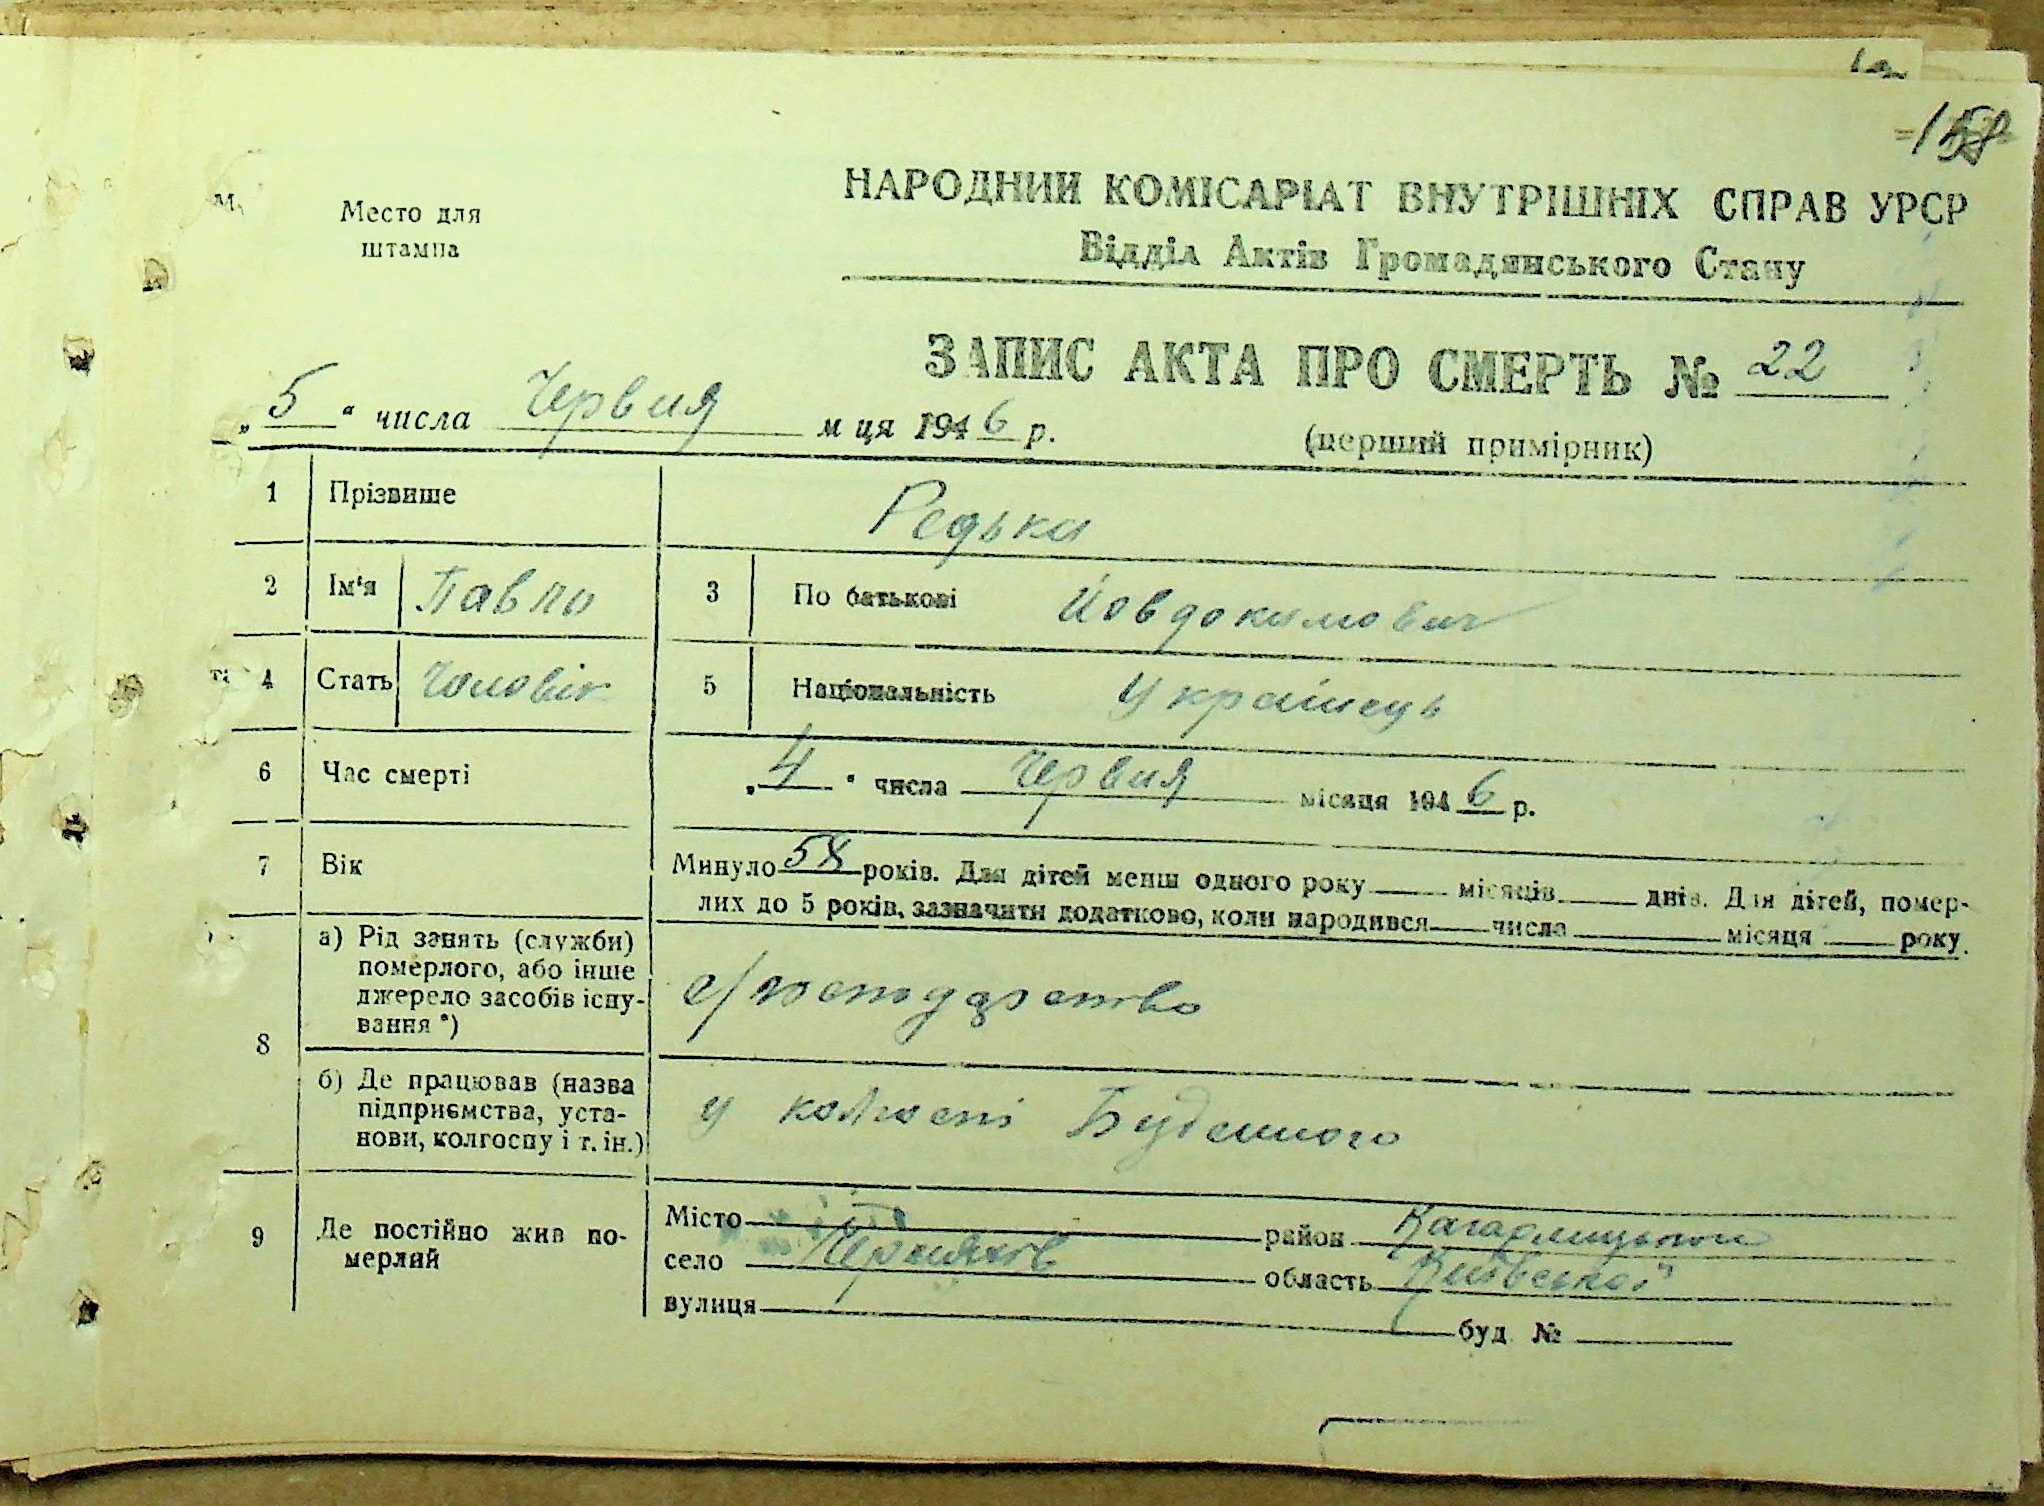 158
Место для
штампа
НАРОДНИЙ КОМІСАРІАТ ВНУТРІШНІХ СПРАВ УРСР
Відділ Актів Громадянського Стану
ЗАПИС АКТА ПРО СМЕРТЬ № 22
„5“ числа Червня м ця 1946 р.
(перший примірник)
1 Прізвище Редька
2 Ім‘я Павло 3 По батькові Йовдокимович
4 Стать Чоловік 5 Національність Українець
6 Час смерті „4“ числа Червня місяця 1946 р.
7 Вік Минуло 58 років. Для дітей менш одного року місяців днів. Для дітей, помер-
лих до 5 років, зазначити додатково, коли народився числа місяця року.
8 а) Рід занять (служби)
померлого, або інше
джерело засобів існу-
вання *)
с/господарство
б) Де працював (назва
підприємства, уста-
нови, колгоспу і т. ін.)
у колгоспі Будённого
9 Де постійно жив по-
мерлий
Місто район Кагарлицького
село Черняхів область Київської
вулиця буд №